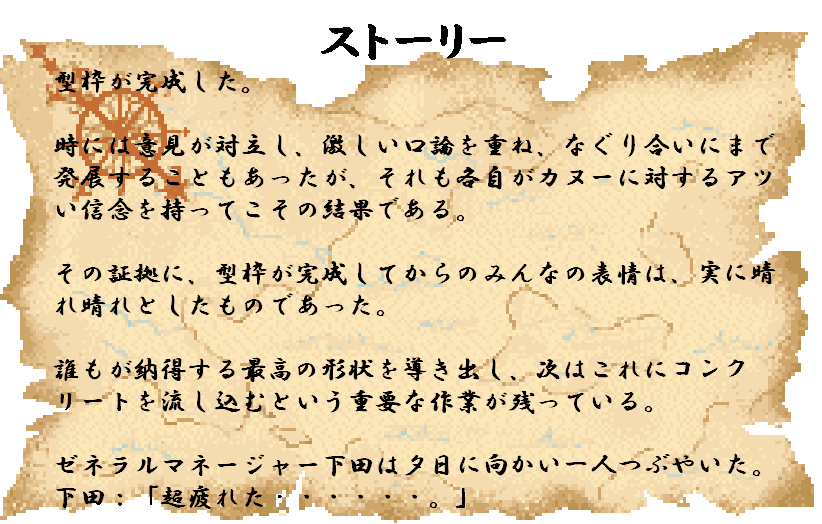 ストーリー
型枠が完成した。
時には意見が対立し、激しい口論を重ね、なぐり合いにまで
発展することもあったが、それも各自がカヌーに対するアツ
い信念を持ってこその結果である。
その証拠に、型枠が完成してからのみんなの表情は、実に晴
れ晴れとしたものであった。
誰もが納得する最高の形状を導き出し、次はこれにコンク
リートを流し込むという重要な作業が残っている。
ゼネラルマネージャー下田は夕日に向かい一人つぶやいた。
下田:「超疲れた・・・・・・。」